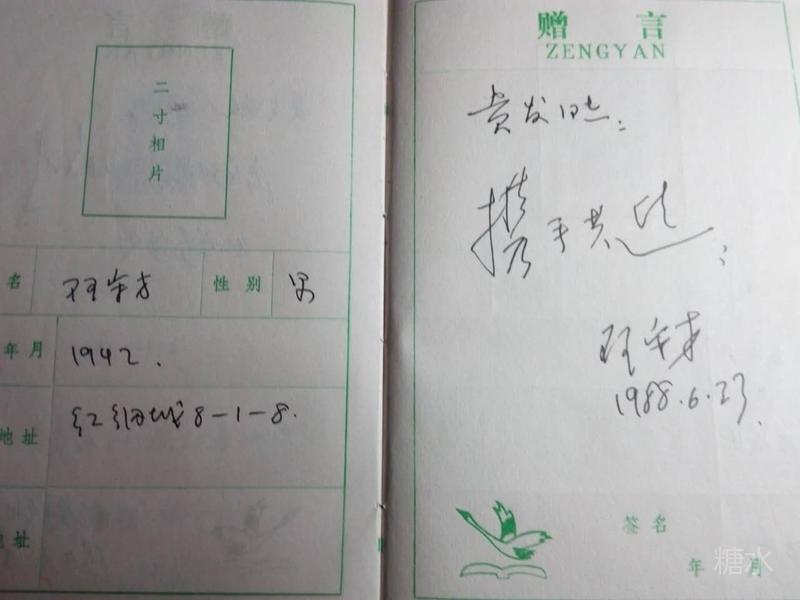 二
寸
相
片
名
性 别 男
年 月 1942.
地 址 红钢城8-1-8.
地 址
赠 言
ZENGYAN
贵发同志:
携手共进
1988.6.23.
签 名
年 月
糖水